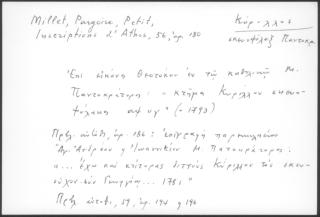 Millet, Pargoire, Petit,
Inscriptions d'Athos, 56, ἀρ. 180
Κύριλλος
σκευοφύλαξ Παντοκρ.
Ἐπὶ εἰκόνος Θεοτόκου ἐν τῷ καθολικῷ Μ.
Παντοκράτορος: « κτῆμα Κυρίλλου σκευο-
φύλακος αψϟγ " (= 1793)
Πρβλ. αὐτόθι, ἀρ. 186: ἐπιγραφὴ παρεκκλησίου
Ἁγ. Ἀνδρέου ἢ Ἰωαννικίου Μ. Παντοκράτορος:
«... ἔχω καὶ κτίτορας διττοὺς Κύριλλον τὸν σκευ-
Γεωργίου... 1781 "
Πρβλ. αὐτόθι, 59, ἀρ. 194 196